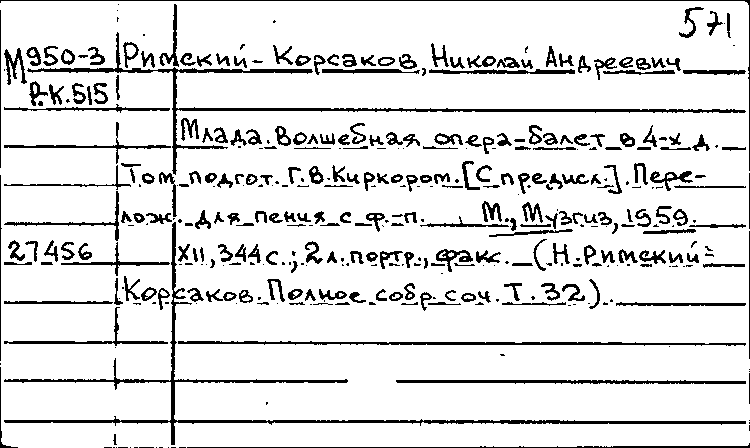 571
М950-3 Римский-Корсаков, Николай Андреевич
Р.-К.515
Млада. Волшебная опера-балет в 4-х д.
Том подгот. Г.В.Киркором. [С предисл.]. Пере-
лож. для пения с ф.-п. М., Музгиз, 1959.
27456 XII, 344 с.; 2 л. портр., факс. (Н. Римский-
Корсаков. Полное собр. соч. Т. 32).